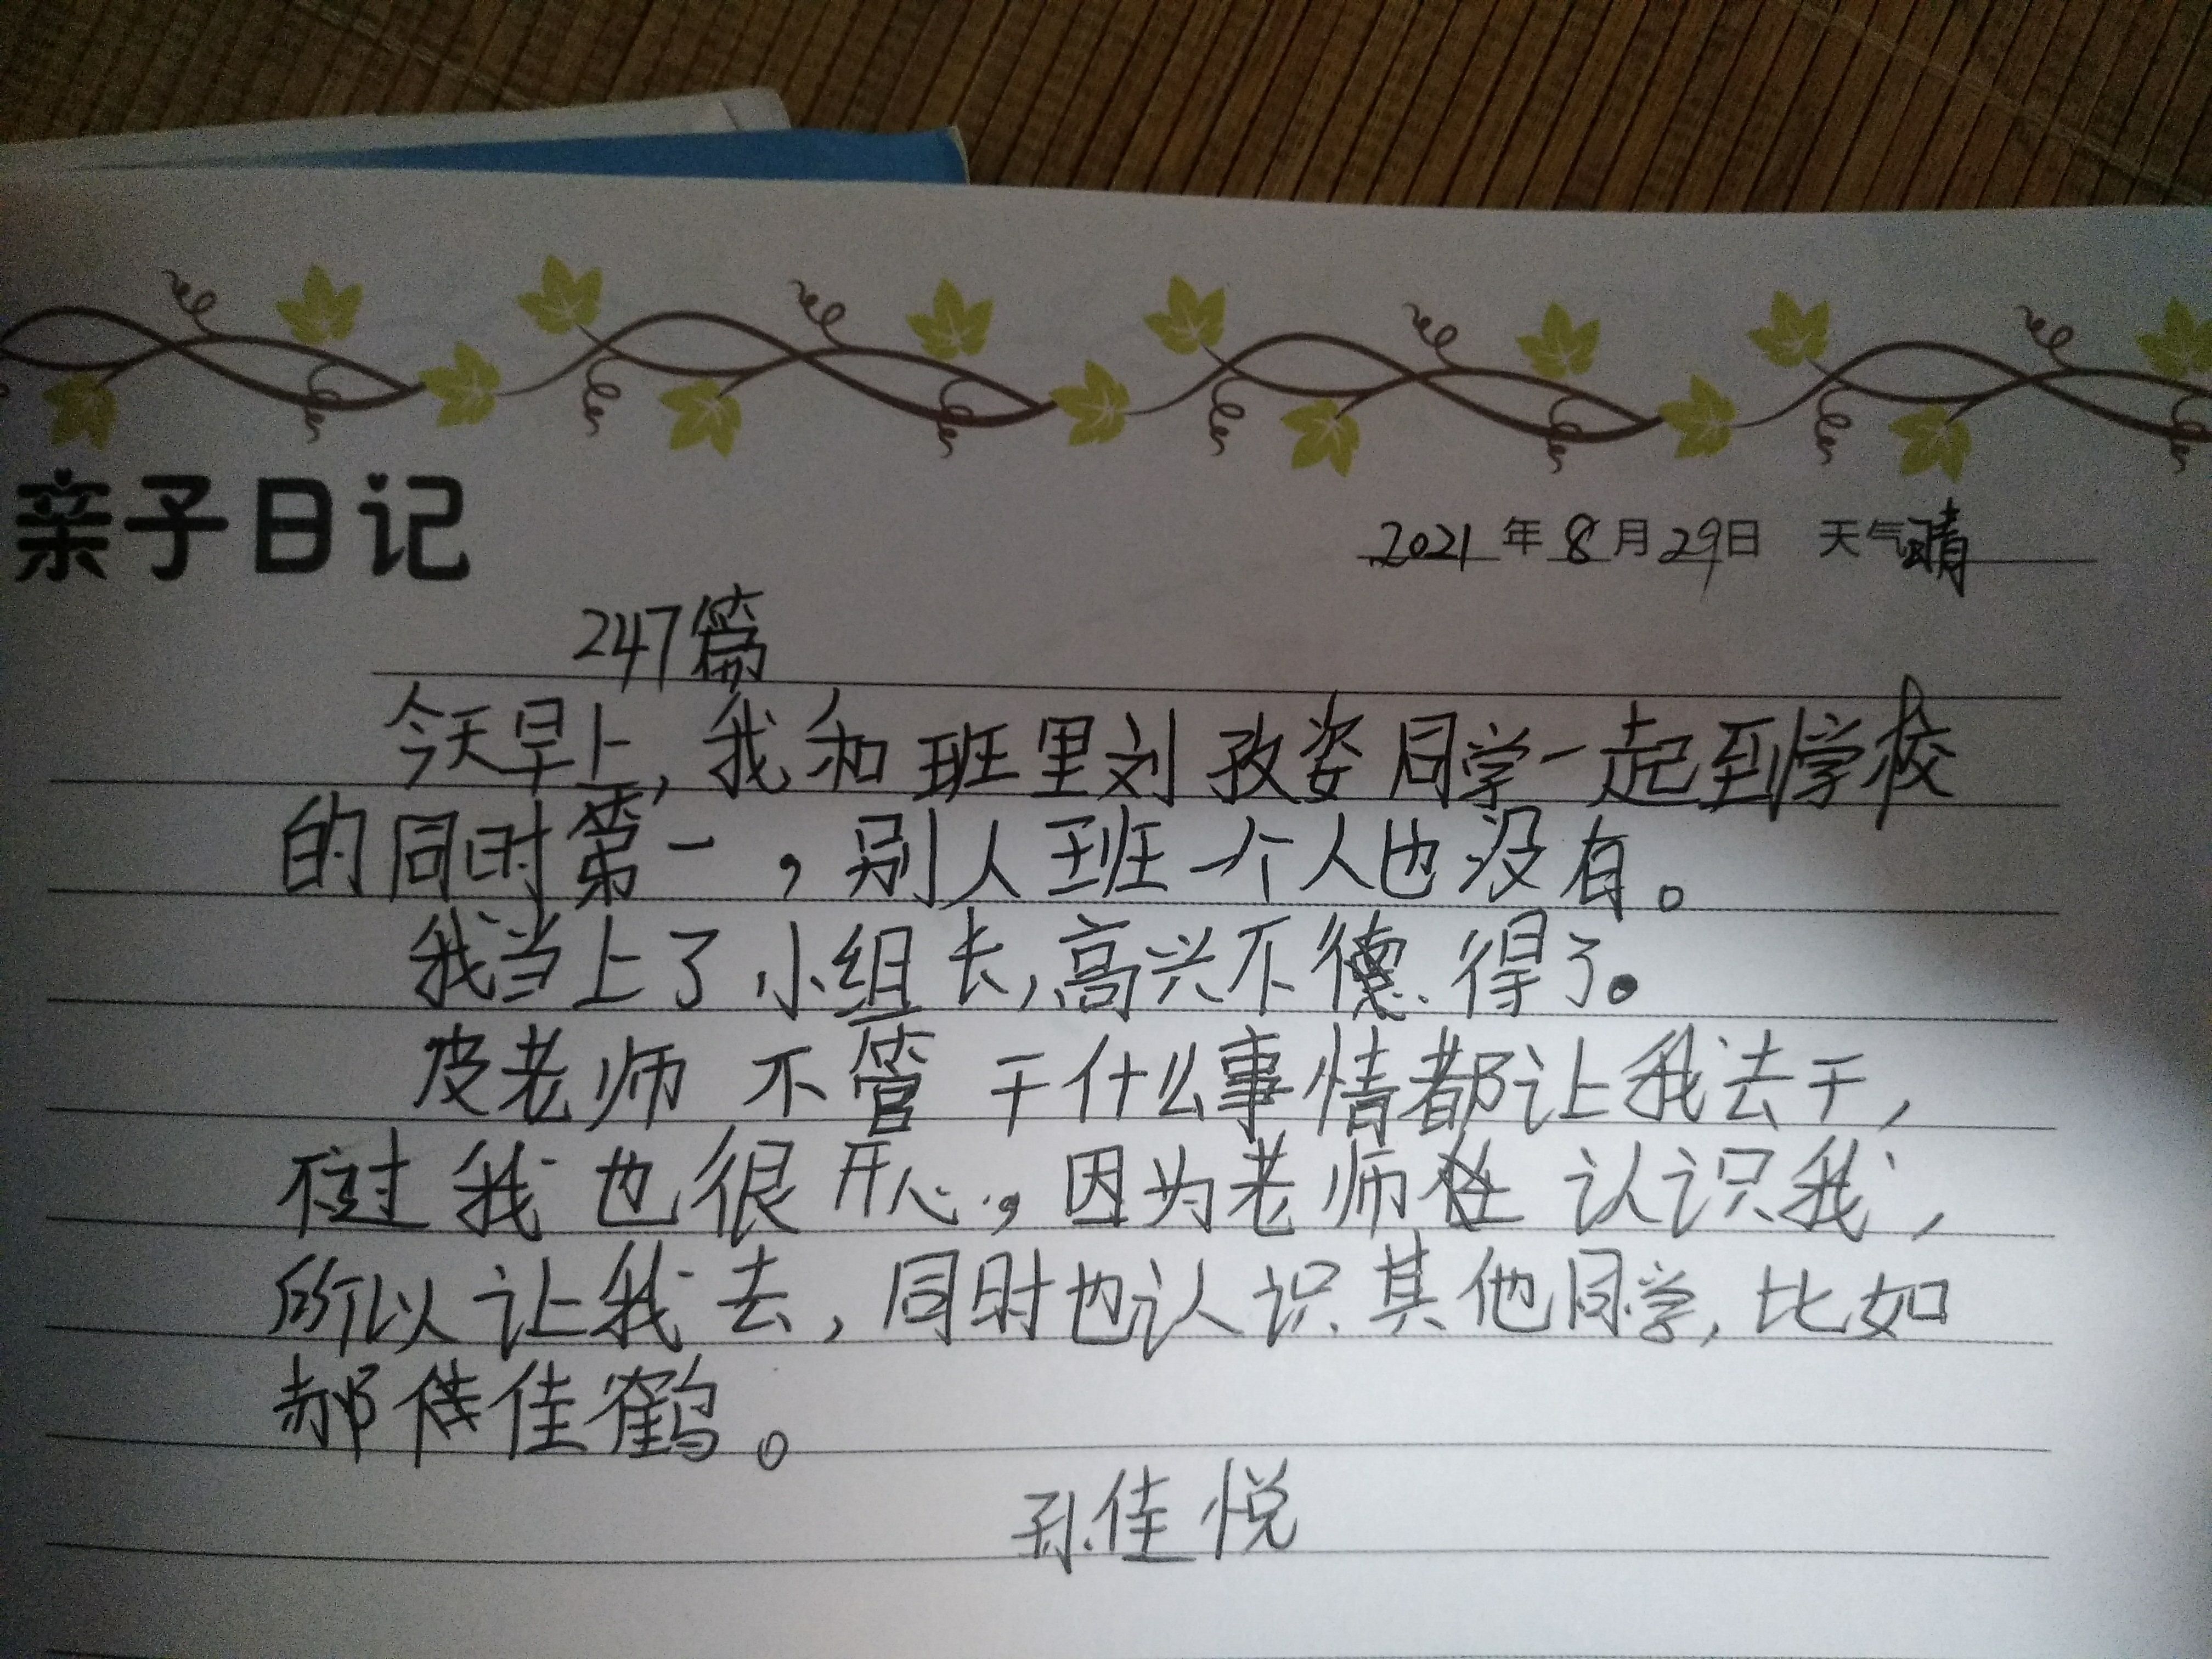 亲子日记
2021年8月29日 天气晴
247篇
今天早上,我和班里刘孜姿同学一起到学校
的同时第一,别人班一个人也没有。
我当上了小组长,高兴不得了。
皮老师不管干什么事情都让我去干,
不过我也很开心,因为老师认识我,
所以让我去,同时也认识其他同学,比如
郝佳鹤。
孙佳悦